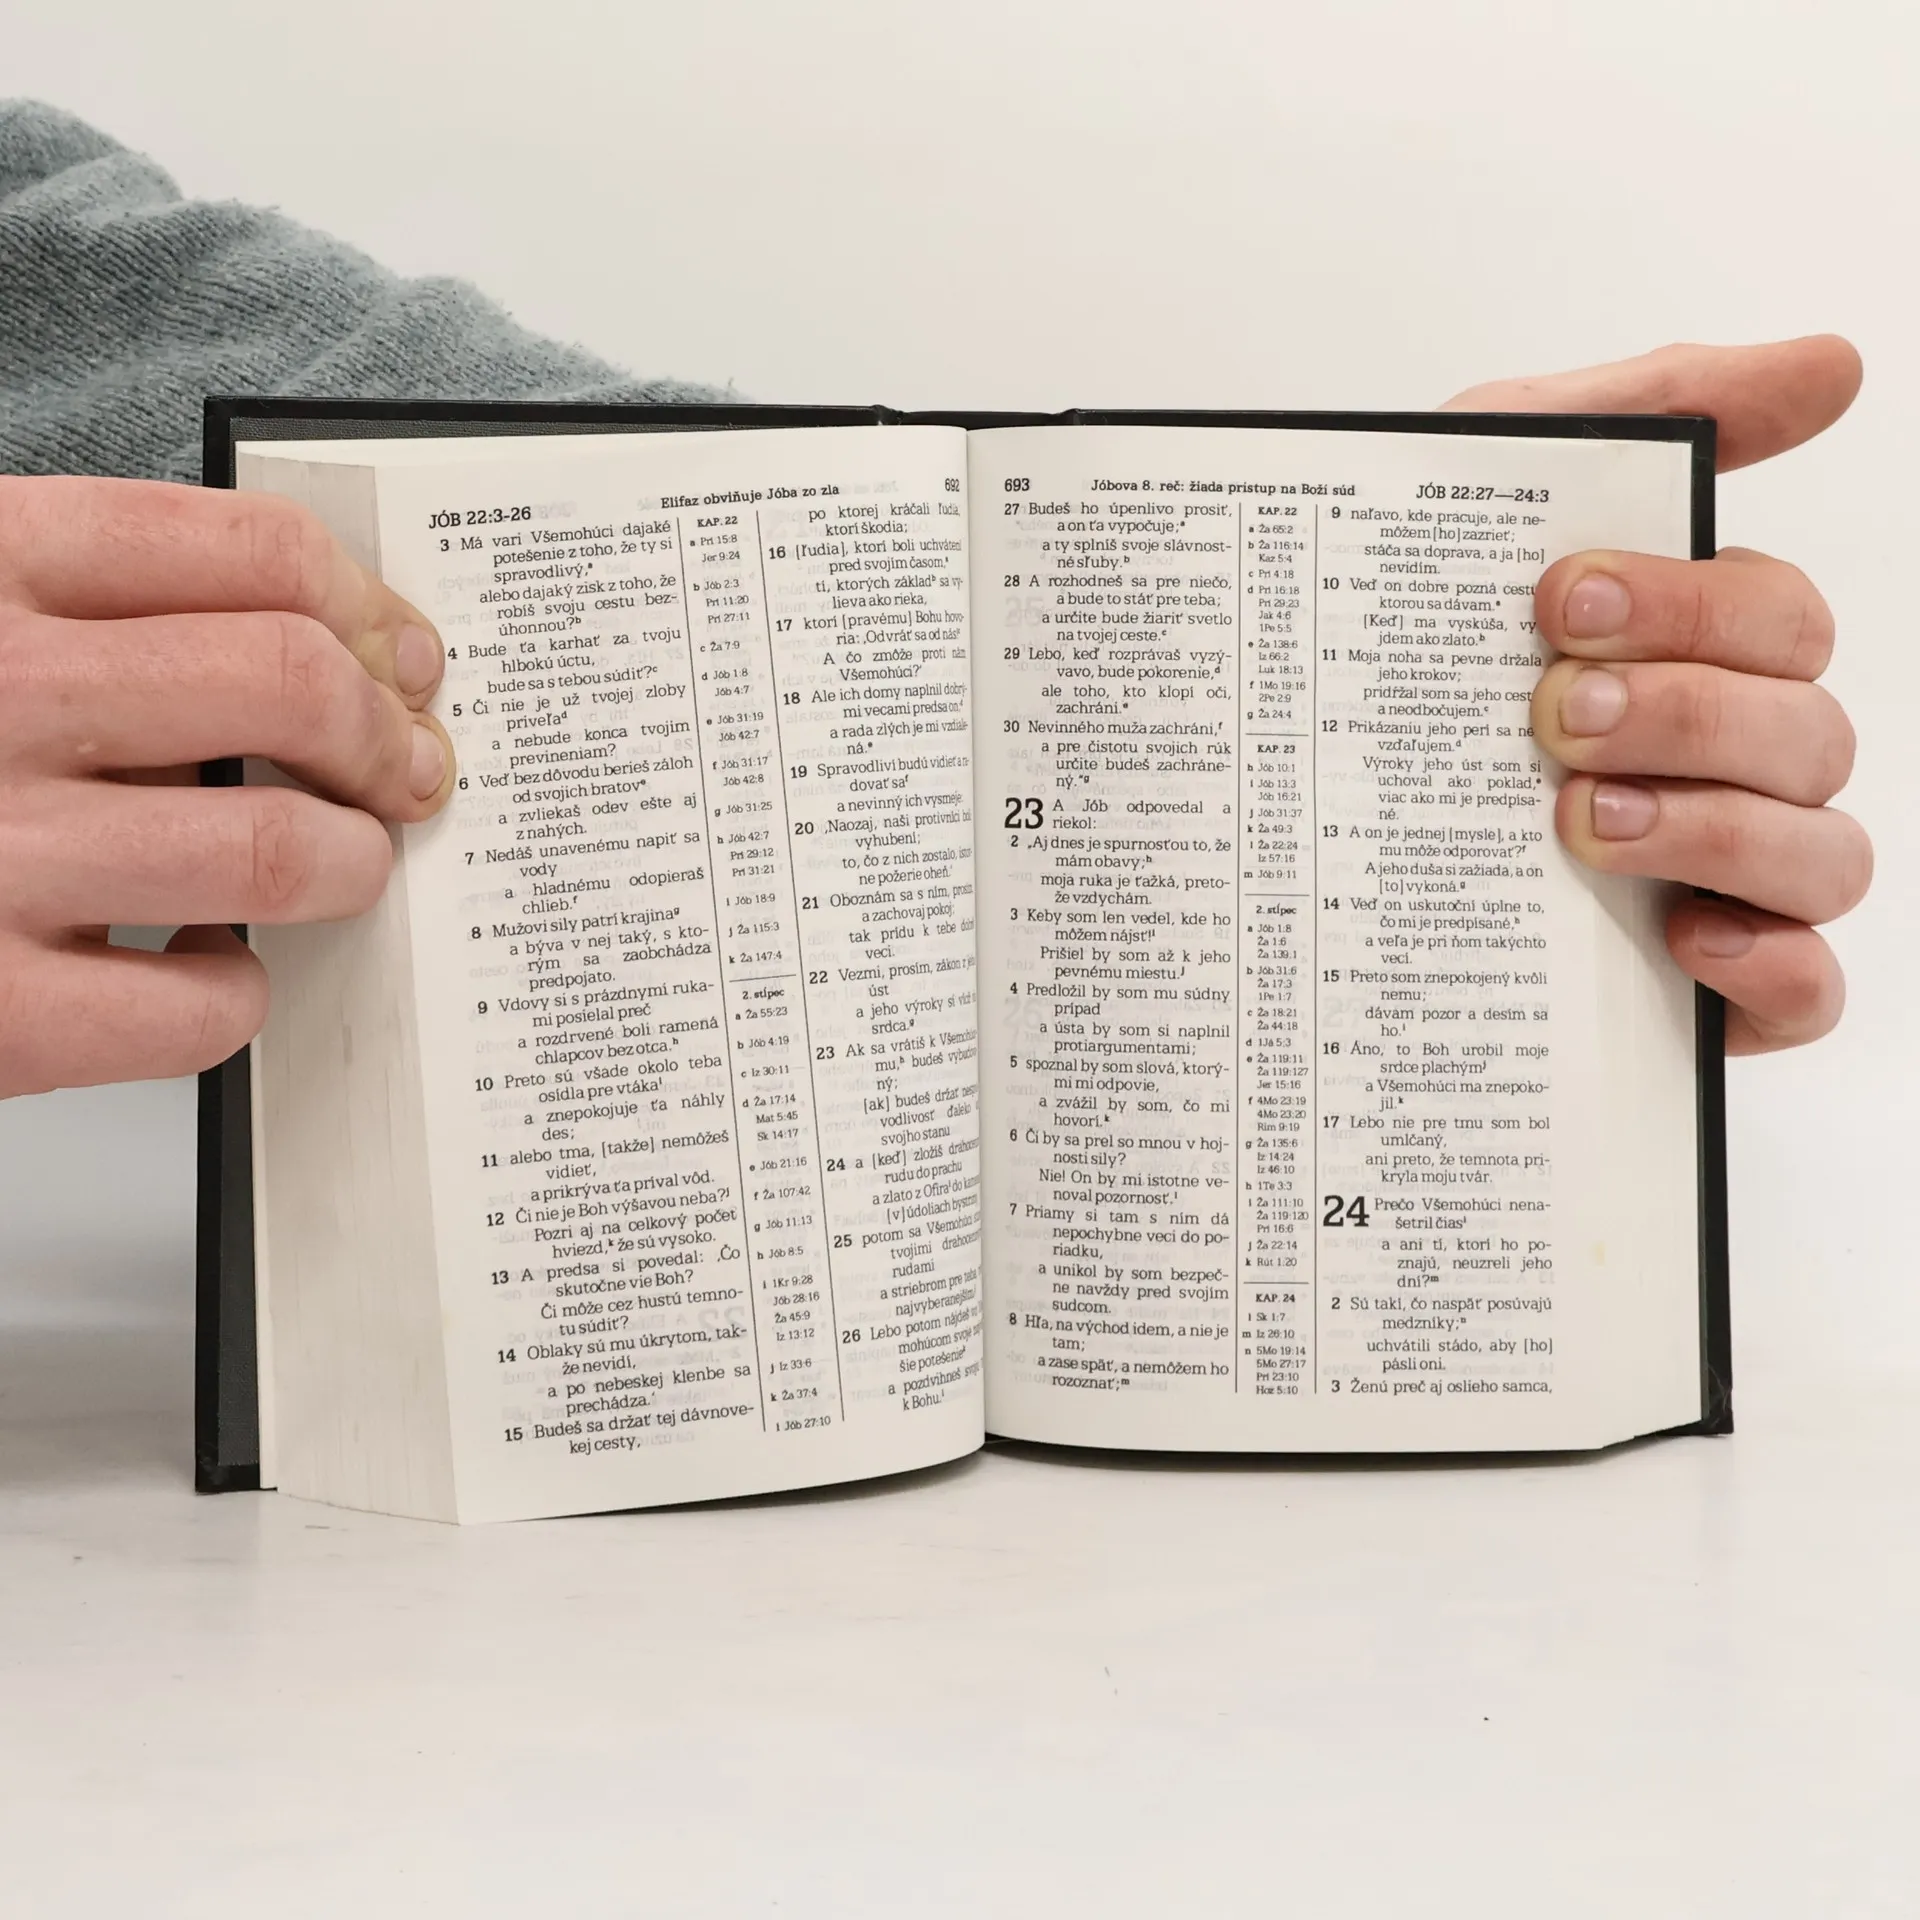 JÓB 22:3-26
Elifaz obviňuje Jóba zo zla
692
3 Má vari Všemohúci dajaké
potešenie z toho, že ty si
spravodlivý,ª
alebo dajaký zisk z toho, že
robíš svoju cestu bez-
úhonnou?ᵇ
4 Bude ťa karhať za tvoju
hlbokú úctu,
bude sa s tebou súdiť?ᶜ
5 Či nie je už tvojej zloby
priveľaᵈ
a nebude konca tvojim
previneniam?
6 Veď bez dôvodu berieš záloh
od svojich bratovᵉ
a zvliekaš odev ešte aj
z nahých.
7 Nedáš unavenému napiť sa
vody
a hladnému odopieraš
chlieb.ᶠ
8 Mužovi sily patrí krajinaᵍ
a býva v nej taký, s kto-
rým sa zaobchádza
predpojato.
9 Vdovy si s prázdnymi ruka-
mi posielal preč
a rozdrvené boli ramená
chlapcov bez otca.ʰ
10 Preto sú všade okolo teba
osídla pre vtákaⁱ
a znepokojuje ťa náhly
des;
11 alebo tma, [takže] nemôžeš
vidieť,
a prikrýva ťa príval vôd.
12 Či nie je Boh výšavou neba?ʲ
Pozri aj na celkový počet
hviezd,ᵏ že sú vysoko.
13 A predsa si povedal: ‚Čo
skutočne vie Boh?
Či môže cez hustú temno-
tu súdiť?
14 Oblaky sú mu úkrytom, tak-
že nevidí,
a po nebeskej klenbe sa
prechádza.‘
15 Budeš sa držať tej dávnove-
kej cesty,
KAP. 22
a Pri 15:8
Jer 9:24
b Jób 2:3
Pri 11:20
Pri 27:11
c Ža 7:9
d Jób 1:8
Jób 4:7
e Jób 31:19
Jób 42:7
f Jób 31:17
Jób 42:8
g Jób 31:25
h Jób 42:7
Pri 29:12
Pri 31:21
i Jób 18:9
j Ža 115:3
k Ža 147:4
2. stĺpec
a Ža 55:23
b Jób 4:19
c Iz 30:11
d Ža 17:14
Mat 5:45
Sk 14:17
e Jób 21:16
f Ža 107:42
g Jób 11:13
h Jób 8:5
i 1Kr 9:28
Jób 28:16
Ža 45:9
Iz 13:12
j Iz 33:6
k Ža 37:4
l Jób 27:10
po ktorej kráčali ľudia,
ktorí škodia;
16 [ľudia], ktorí boli uchvátení
pred svojím časom,ª
tí, ktorých základᵇ sa vy-
lieva ako rieka,
17 ktorí [pravému] Bohu hovo-
ria: ‚Odvráť sa od nás!ᶜ
A čo zmôže proti nám
Všemohúci?‘
18 Ale ich domy naplnil dobrý-
mi vecami predsa on,ᵈ
a rada zlých je mi vzdiale-
ná.ᵉ
19 Spravodliví budú vidieť a ra-
dovať saᶠ
a nevinný ich vysmeje:
20 ‚Naozaj, naši protivníci boli
vyhubení;
to, čo z nich zostalo, istot-
ne požerie oheň.‘
21 Oboznám sa s ním, prosím
a zachovaj pokoj;
tak prídu k tebe dobré
veci.
22 Vezmi, prosím, zákon z jeho
úst
a jeho výroky si vlož do
srdca.ᵍ
23 Ak sa vrátiš k Všemohúce-
mu,ʰ budeš vybudova-
ný;
[ak] budeš držať nespra-
vodlivosť ďaleko
svojho stanu
24 a [keď] zložíš drahocennú
rudu do prachu
a zlato z Ofíraⁱ do
[v] údoliach bystrín,
25 potom sa Všemohúci
tvojimi drahocennými
rudami
a striebrom pre teba,
najvyberanejším.ʲ
26 Lebo potom nájdeš vo
mohúcom svoje
šie potešenieᵏ
a pozdvihneš svoju
k Bohu.ˡ
693
Jóbova 8. reč: žiada prístup na Boží súd
JÓB 22:27—24:3
27 Budeš ho úpenlivo prosiť,
a on ťa vypočuje;ª
a ty splníš svoje slávnost-
né sľuby.ᵇ
28 A rozhodneš sa pre niečo,
a bude to stáť pre teba;
a určite bude žiariť svetlo
na tvojej ceste.ᶜ
29 Lebo, keď rozprávaš vyzý-
vavo, bude pokorenie,ᵈ
ale toho, kto klopí oči,
zachráni.ᵉ
30 Nevinného muža zachráni,ᶠ
a pre čistotu svojich rúk
určite budeš zachráne-
ný.“ᵍ
23 A Jób odpovedal a
riekol:
2 „Aj dnes je spurnosťou to, že
mám obavy;ʰ
moja ruka je ťažká, preto-
že vzdychám.
3 Keby som len vedel, kde ho
môžem nájsť!ⁱ
Prišiel by som až k jeho
pevnému miestu.ʲ
4 Predložil by som mu súdny
prípad
a ústa by som si naplnil
protiargumentami;
5 spoznal by som slová, ktorý-
mi mi odpovie,
a zvážil by som, čo mi
hovorí.ᵏ
6 Či by sa prel so mnou v hoj-
nosti sily?
Nie! On by mi istotne ve-
noval pozornosť.ˡ
7 Priamy si tam s ním dá
nepochybne veci do po-
riadku,
a unikol by som bezpeč-
ne navždy pred svojím
sudcom.
8 Hľa, na východ idem, a nie je
tam;
a zase späť, a nemôžem ho
rozoznať;ᵐ
KAP. 22
a Ža 65:2
b Ža 116:14
Kaz 5:4
c Pri 4:18
d Pri 16:18
Pri 29:23
Jak 4:6
1Pe 5:5
e Ža 138:6
Iz 66:2
Luk 18:13
f 1Mo 19:16
2Pe 2:9
g Ža 24:4
KAP. 23
h Jób 10:1
i Jób 13:3
Jób 16:21
j Jób 31:37
k Ža 49:3
l Ža 22:24
Iz 57:16
m Jób 9:11
2. stĺpec
a Jób 1:8
Ža 1:6
Ža 139:1
b Jób 31:6
Ža 17:3
1Pe 1:7
c Ža 18:21
Ža 44:18
d 1Já 5:3
e Ža 119:11
Ža 119:127
Jer 15:16
f 4Mo 23:19
4Mo 23:20
Rim 9:19
g Ža 135:6
Iz 14:24
Iz 46:10
h 1Te 3:3
i Ža 111:10
Ža 119:120
Pri 16:6
j Ža 22:14
k Rút 1:20
KAP. 24
l Sk 1:7
m Iz 26:10
n 5Mo 19:14
5Mo 27:17
Pri 23:10
Hoz 5:10
9 naľavo, kde pracuje, ale ne-
môžem [ho] zazrieť;
stáča sa doprava, a ja [ho]
nevidím.
10 Veď on dobre pozná cestu
ktorou sa dávam.ª
[Keď] ma vyskúša, vy
jdem ako zlato.ᵇ
11 Moja noha sa pevne držala
jeho krokov;
pridŕžal som sa jeho cest
a neodbočujem.ᶜ
12 Prikázaniu jeho perí sa ne
vzďaľujem.ᵈ
Výroky jeho úst som si
uchoval ako poklad,ᵉ
viac ako mi je predpísa-
né.
13 A on je jednej [mysle], a kto
mu môže odporovať?ᶠ
A jeho duša si zažiada, a on
[to] vykoná.ᵍ
14 Veď on uskutoční úplne to,
čo mi je predpísané,ʰ
a veľa je pri ňom takýchto
vecí.
15 Preto som znepokojený kvôli
nemu;
dávam pozor a desím sa
ho.ⁱ
16 Áno, to Boh urobil moje
srdce plachýmʲ
a Všemohúci ma znepoko-
jil.ᵏ
17 Lebo nie pre tmu som bol
umlčaný,
ani preto, že temnota pri-
kryla moju tvár.
24 Prečo Všemohúci nena-
šetril čiasˡ
a ani tí, ktorí ho po-
znajú, neuzreli jeho
dni?ᵐ
2 Sú takí, čo naspäť posúvajú
medzníky;ⁿ
uchvátili stádo, aby [ho]
pásli oni.
3 Ženú preč aj oslieho samca,